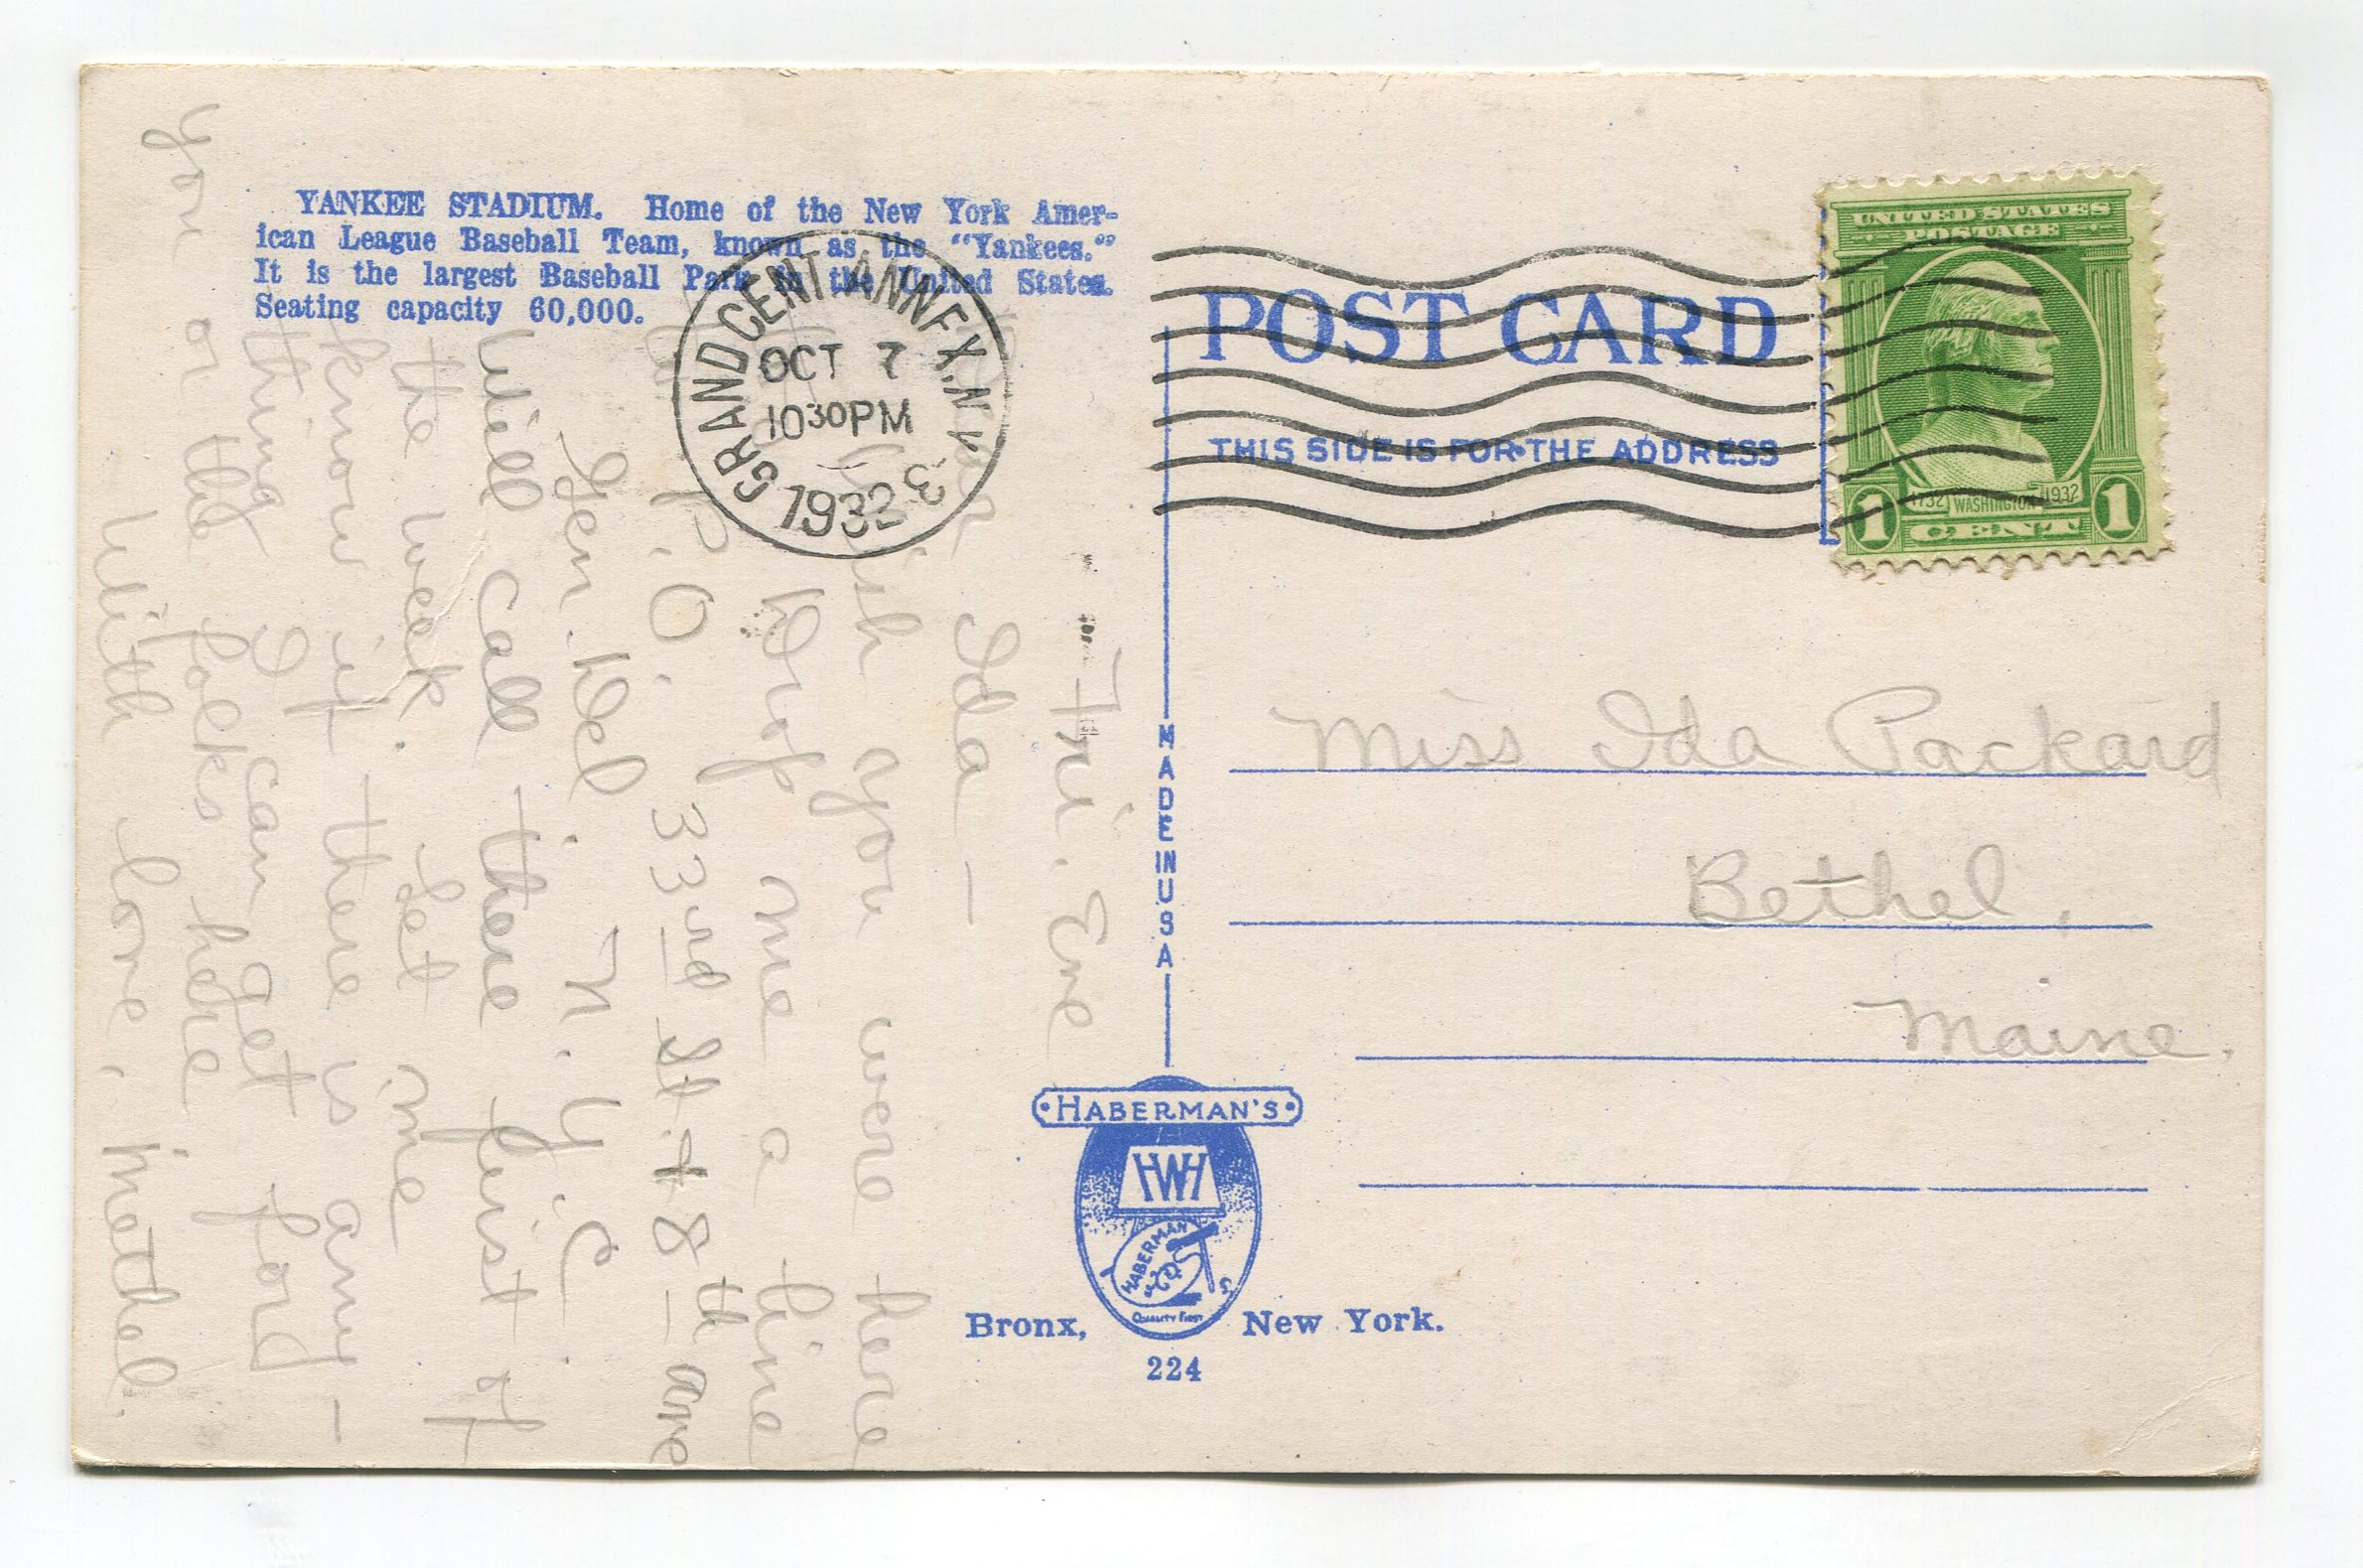 YANKEE STADIUM. Home of the New York Amer-
ican League Baseball Team, known as the "Yankees."
It is the largest Baseball Park in the United States.
Seating capacity 60,000.
GRAND CENT. ANNEX. N.Y. 3
OCT 7
10 30 PM
1932
POST CARD
THIS SIDE IS FOR THE ADDRESS
UNITED STATES
POSTAGE
1732 WASHINGTON 1932
1 CENT 1
Fri. Eve
Dear Ida —
wish you were here
Drop me a line
P.O. 33rd St. + 8th Ave
Gen. Del. N.Y.C.
Will call there first of
the week. Let me
know if there is any-
thing I can get
you or the folks here
With love, Methel.
Miss Ida Packard
Bethel,
Maine.
MADE IN USA
HABERMAN'S
HWH
HABERMAN
QUALITY FIRST
Bronx, New York.
224